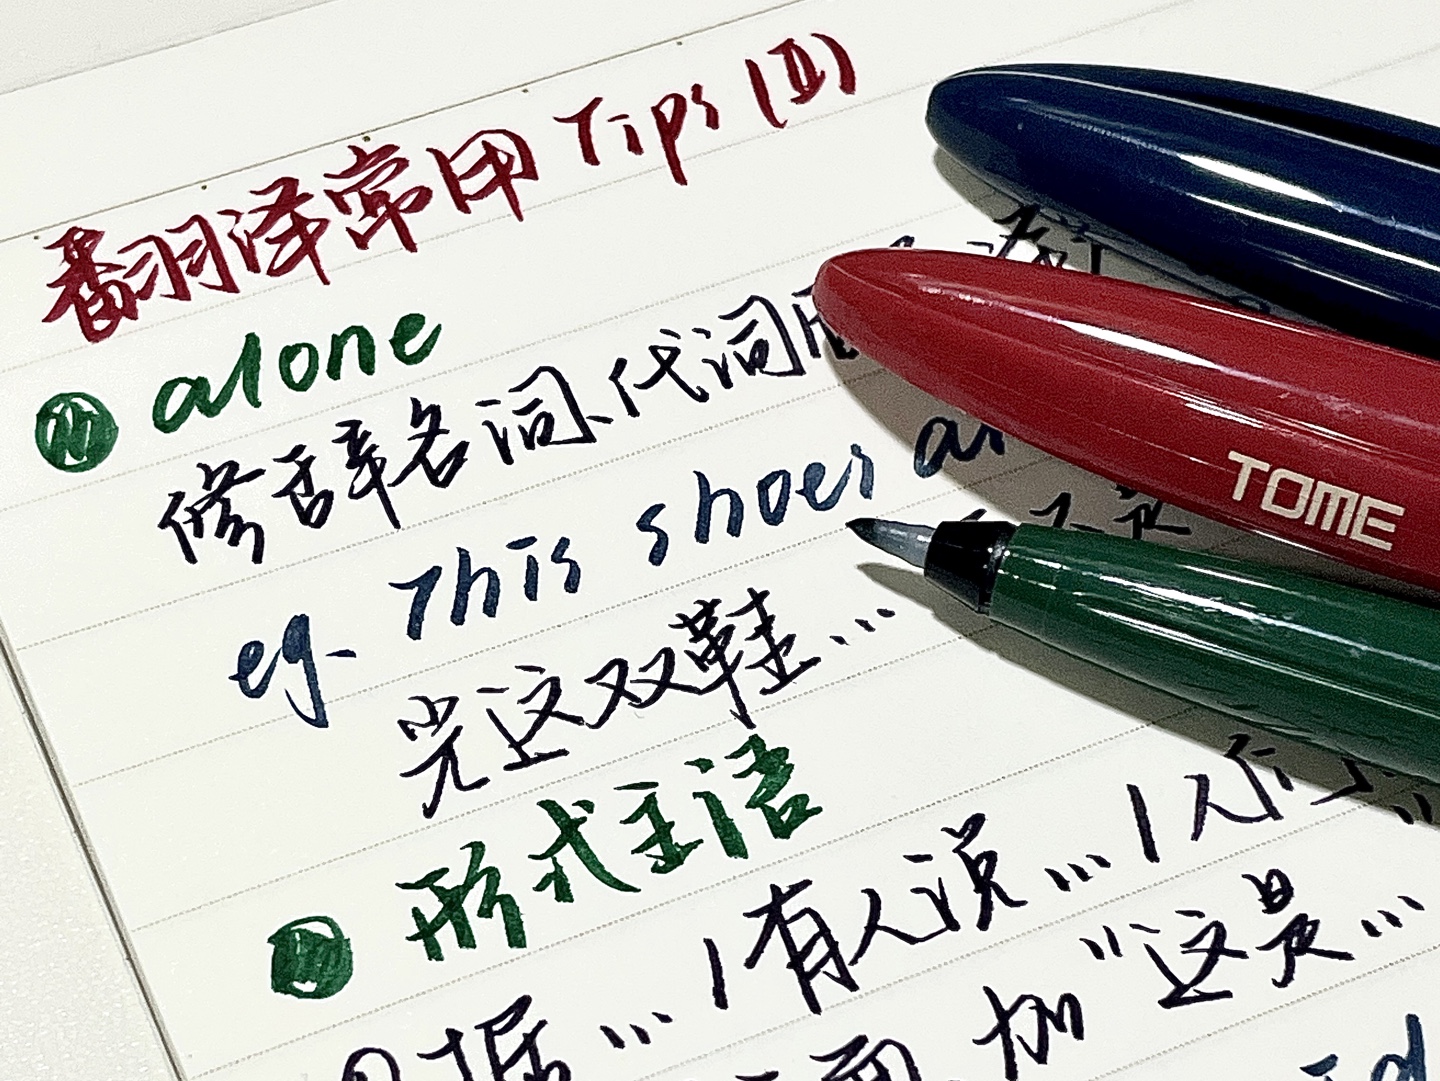 翻译常用 Tips (II)
alone
修辞名词、代词
eg. This shoes
光这双鞋…
形式主语
据…/有人说…/人们
加“这是…
TOME